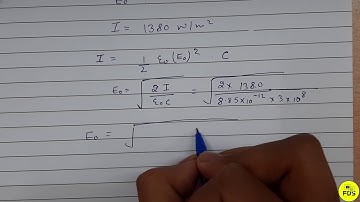 E₀
I = 1380 w/m²
I = 1/2 ε₀ (E₀)² . C
E₀ = √(2 I / ε₀ c) = √(2 × 1380 / 8.85 × 10⁻¹² × 3 × 10⁸)
E₀ = √
FDS